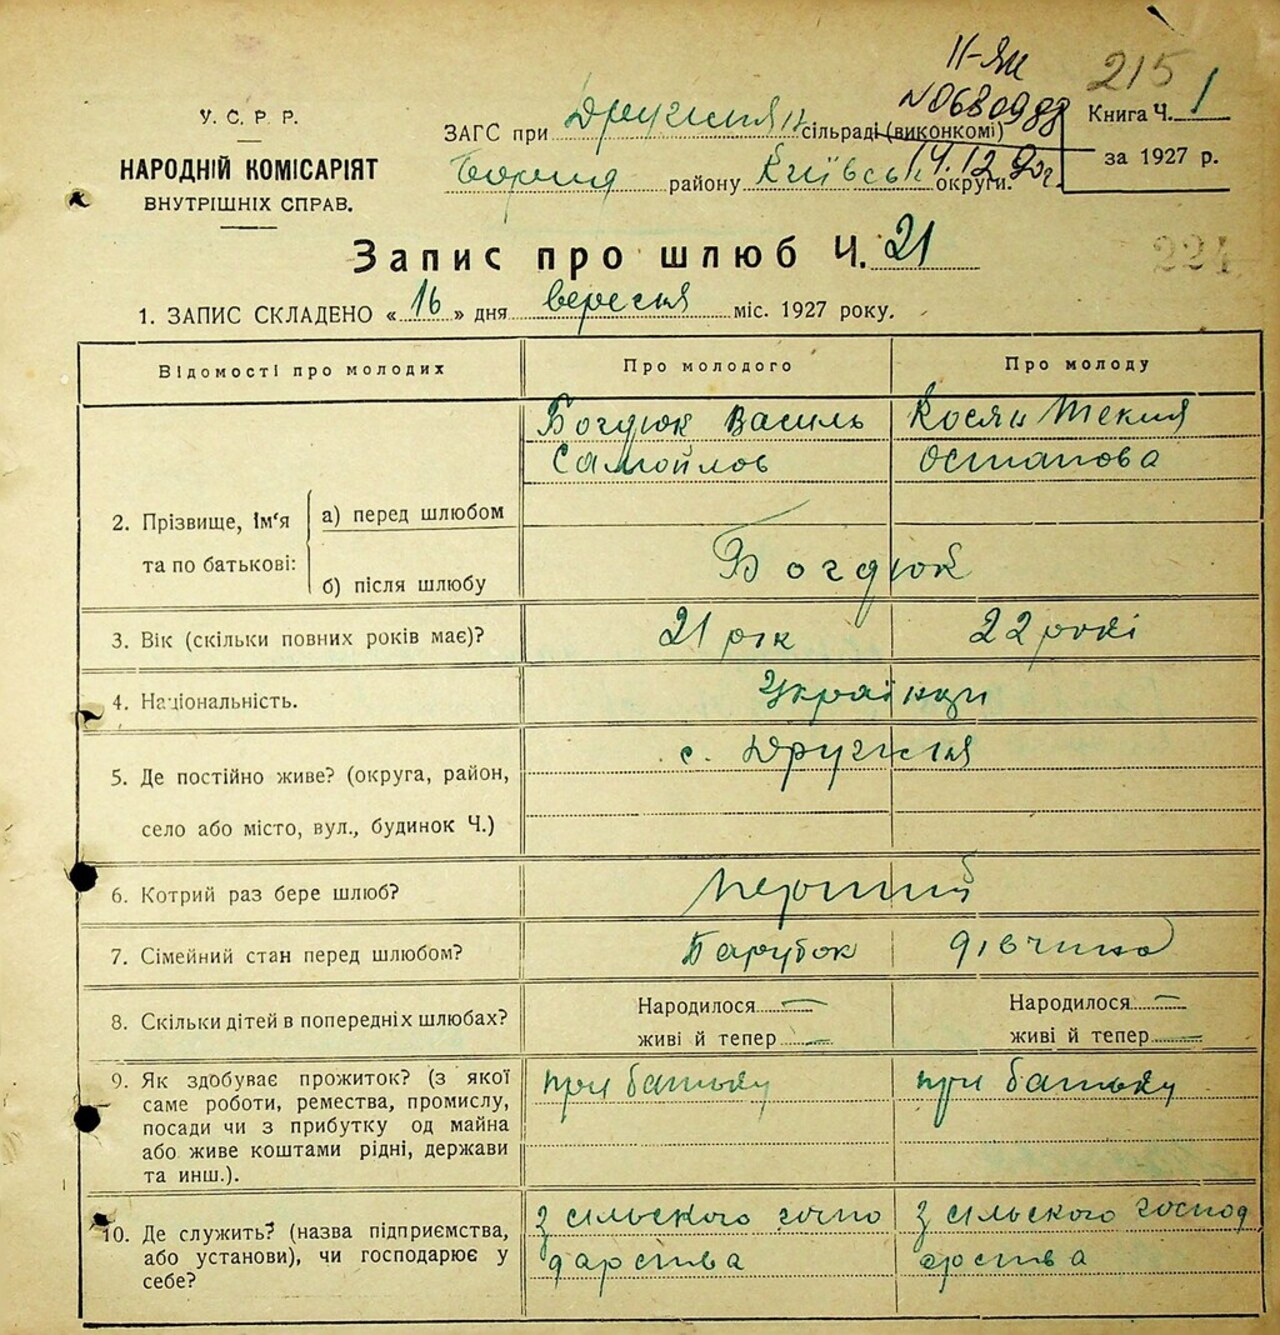 ІІ-ЯМ
215
№068098
14.12.92г.
У. С. Р. Р.
НАРОДНІЙ КОМІСАРІЯТ
ВНУТРІШНІХ СПРАВ.
ЗАГС при Другня сільраді (виконкомі)
Бород району Київськ округи.
Книга Ч. 1
за 1927 р.
Запис про шлюб Ч. 21
224
1. ЗАПИС СКЛАДЕНО «16» дня вересня міс. 1927 року.
Відомості про молодих
Про молодого
Про молоду
2. Прізвище, ім'я
та по батькові:
а) перед шлюбом
Богдюк Василь
Самойлов
Косян Текля
Остапова
б) після шлюбу
Богдюк
3. Вік (скільки повних років має)?
21 рік
22 рокі
4. Національність.
Українци
5. Де постійно живе? (округа, район,
село або місто, вул., будинок Ч.)
с. Другня
6. Котрий раз бере шлюб?
Перший
7. Сімейний стан перед шлюбом?
Парубок
дівчина
8. Скільки дітей в попередніх шлюбах?
Народилося —
живі й тепер —
Народилося —
живі й тепер —
9. Як здобуває прожиток? (з якої
саме роботи, ремества, промислу,
посади чи з прибутку од майна
або живе коштами рідні, держави
та инш.).
при батьку
при батьку
10. Де служить? (назва підприємства,
або установи), чи господарює у
себе?
З сільского госпо
дарства
З сільского господ
арства